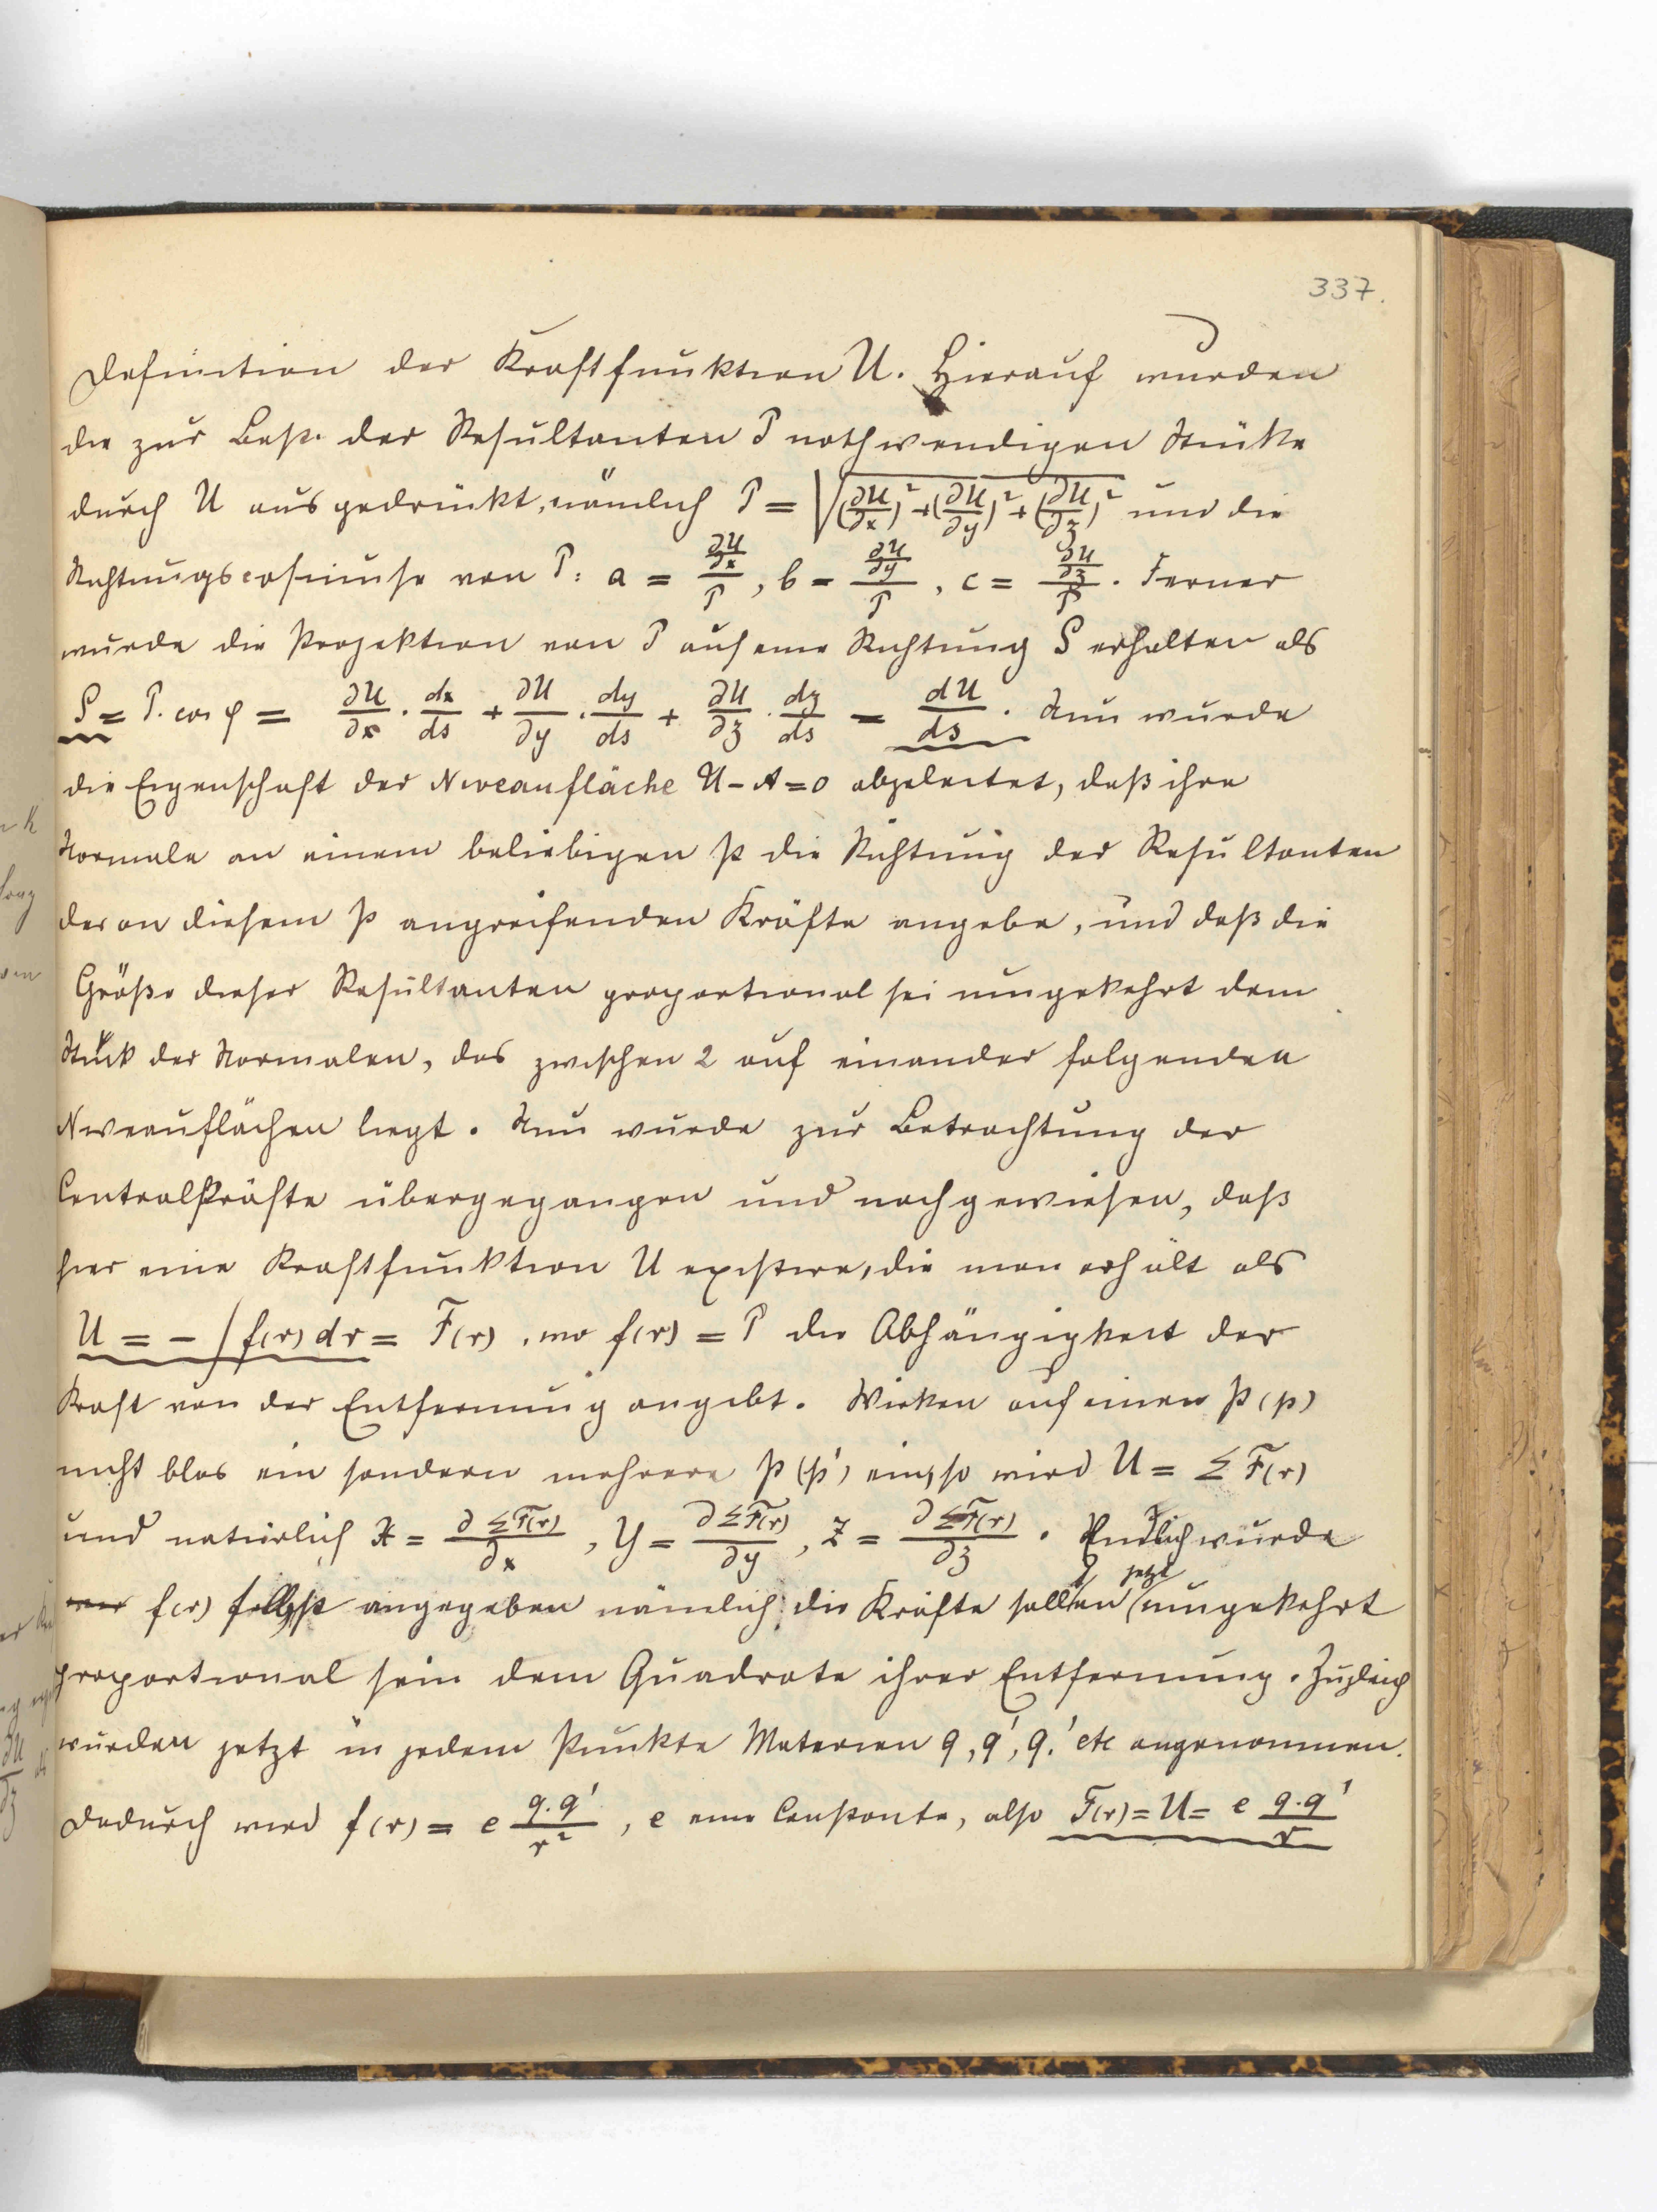 337.
Definition der Kraftfunktion U. Hierauf wurden
die zur Best. der Resultanten P nothwendigen Stücke
durch U ausgedrückt, nämlich P = √((∂U/∂x)² + (∂U/∂y)² + (∂U/∂z)²) und die
Richtungscosinuse von P: a = (∂U/∂x)/P, b = (∂U/∂y)/P, c = (∂U/∂z)/P. Ferner
wurde die Projektion von P auf eine Richtung S erhalten als
S = P. cos φ = ∂U/∂x · dx/ds + ∂U/∂y · dy/ds + ∂U/∂z · dz/ds = dU/ds. Nun wurde
die Eigenschaft der Niveaufläche U - A = 0 abgeleitet, daß ihre
Normale an einem beliebigen P die Richtung der Resultanten
der an diesem P angreifenden Kräfte angebe, und daß die
Größe dieser Resultanten proportional sei umgekehrt dem
Stück der Normalen, das zwischen 2 auf einander folgenden
Niveauflächen liegt. Nun wurde zur Betrachtung der
Centralkräfte übergegangen und nachgewiesen, daß
hier eine Kraftfunktion U existire, die man erhält als
U = - ∫ f(r) dr = F(r), wo f(r) = P die Abhängigkeit der
Kraft von der Entfernung angibt. Wirken auf einen P (p)
nicht blos ein sondern mehrere P (p') ein, so wird U = Σ F(r)
und natürlich X = ∂ΣF(r)/∂x, Y = ∂ΣF(r)/∂y, Z = ∂ΣF(r)/∂z. Endlich wurde
f(r) selbst angegeben nämlich die Kräfte sollten jetzt umgekehrt
proportional sein dem Quadrate ihrer Entfernung. Zugleich
wurden jetzt in jedem Punkte Materien q, q', q,' etc angenommen.
Dadurch wird f(r) = e q.q'/r², e eine Constante, also F(r) = U = e q.q'/r